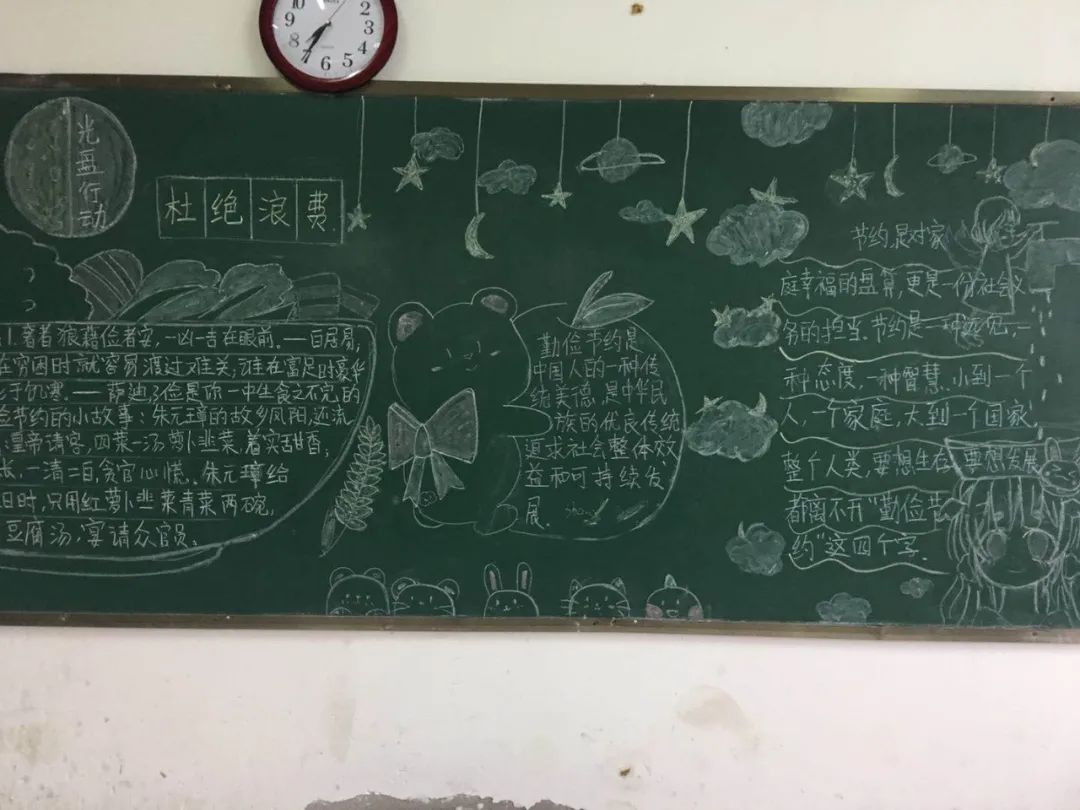 10
2
9
3
8
4
7
6
5
光盘行动
杜绝浪费
1.奢者狼藉俭者安,一凶一吉在眼前。—白居易,
在穷困时就容易渡过难关;谁在富足时豪华
于饥寒。—萨迪3俭是你一中生食之不完的
节约的小故事:朱元璋的故乡凤阳,还流
皇帝请客,四菜一汤萝卜韭菜,着实甜香,
长,一清二白贪官心慌。朱元璋给
日时,只用红萝卜韭菜青菜两碗,
豆腐汤,宴请众官员。
勤俭节约是
中国人的一种传
统美德,是中华民
族的优良传统
追求社会整体效
益和可持续发
展.
节约,是对家
庭幸福的盘算,更是一份社会义
务的担当.节约是一种远见,一
种态度,一种智慧.小到一个
人,一个家庭,大到一个国家,
整个人类,要想生存,要想发展
都离不开“勤俭节
约”这四个字.